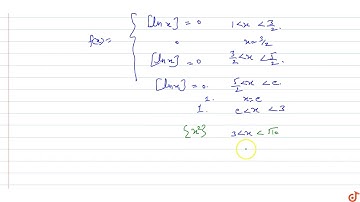 [ln x] = 0 1 < x < 3/2.
f(x) = { 0 x = 3/2
[ln x] = 0 3/2 < x < 5/2
[ln x] = 0. 5/2 < x < e
1. x = e
1. e < x < 3
{x²} 3 < x < √10